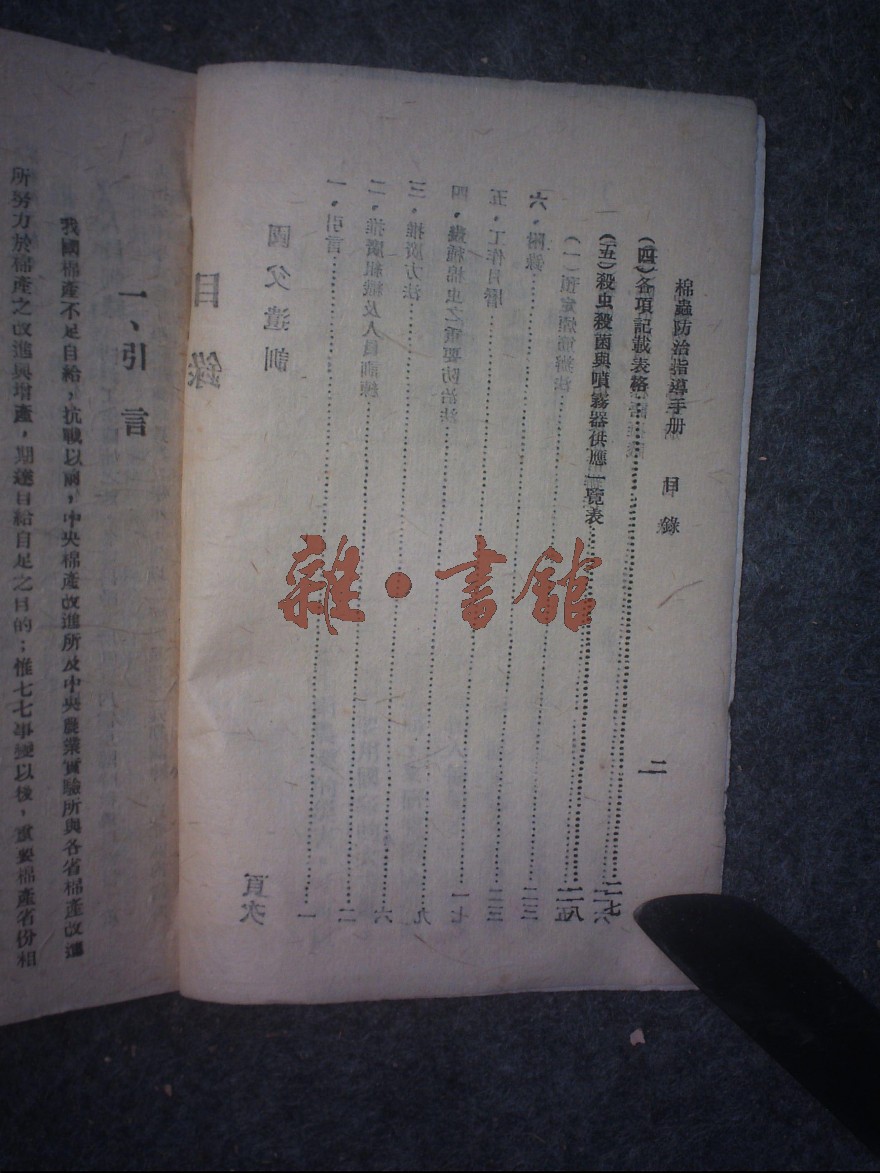 棉蟲防治指導手册 目錄 二
(四)各項記載表格……二七
(五)殺虫殺菌與噴霧器供應一覽表……二八
六・附錄……二三
五・工作月曆……一七
四・幾種棉虫之重要防治法……九
三・推廣方法……六
二・推廣組織及人員訓練……二
一・引言……一
國父遺訓
目錄 頁次
一、引言
我國棉產不足自給，抗戰以前，中央棉產改進所及中央農業實驗所與各省棉產改進
所努力於棉產之改進與增產，期達自給自足之目的；惟七七事變以後，重要棉產省份相
雜・書館